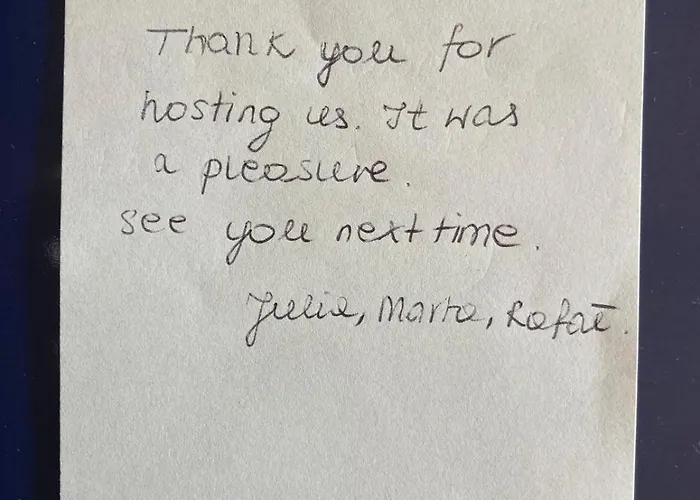 Thank you for
hosting us. It was
a pleasure.
see you next time.
Julia, Marta, Rafał.